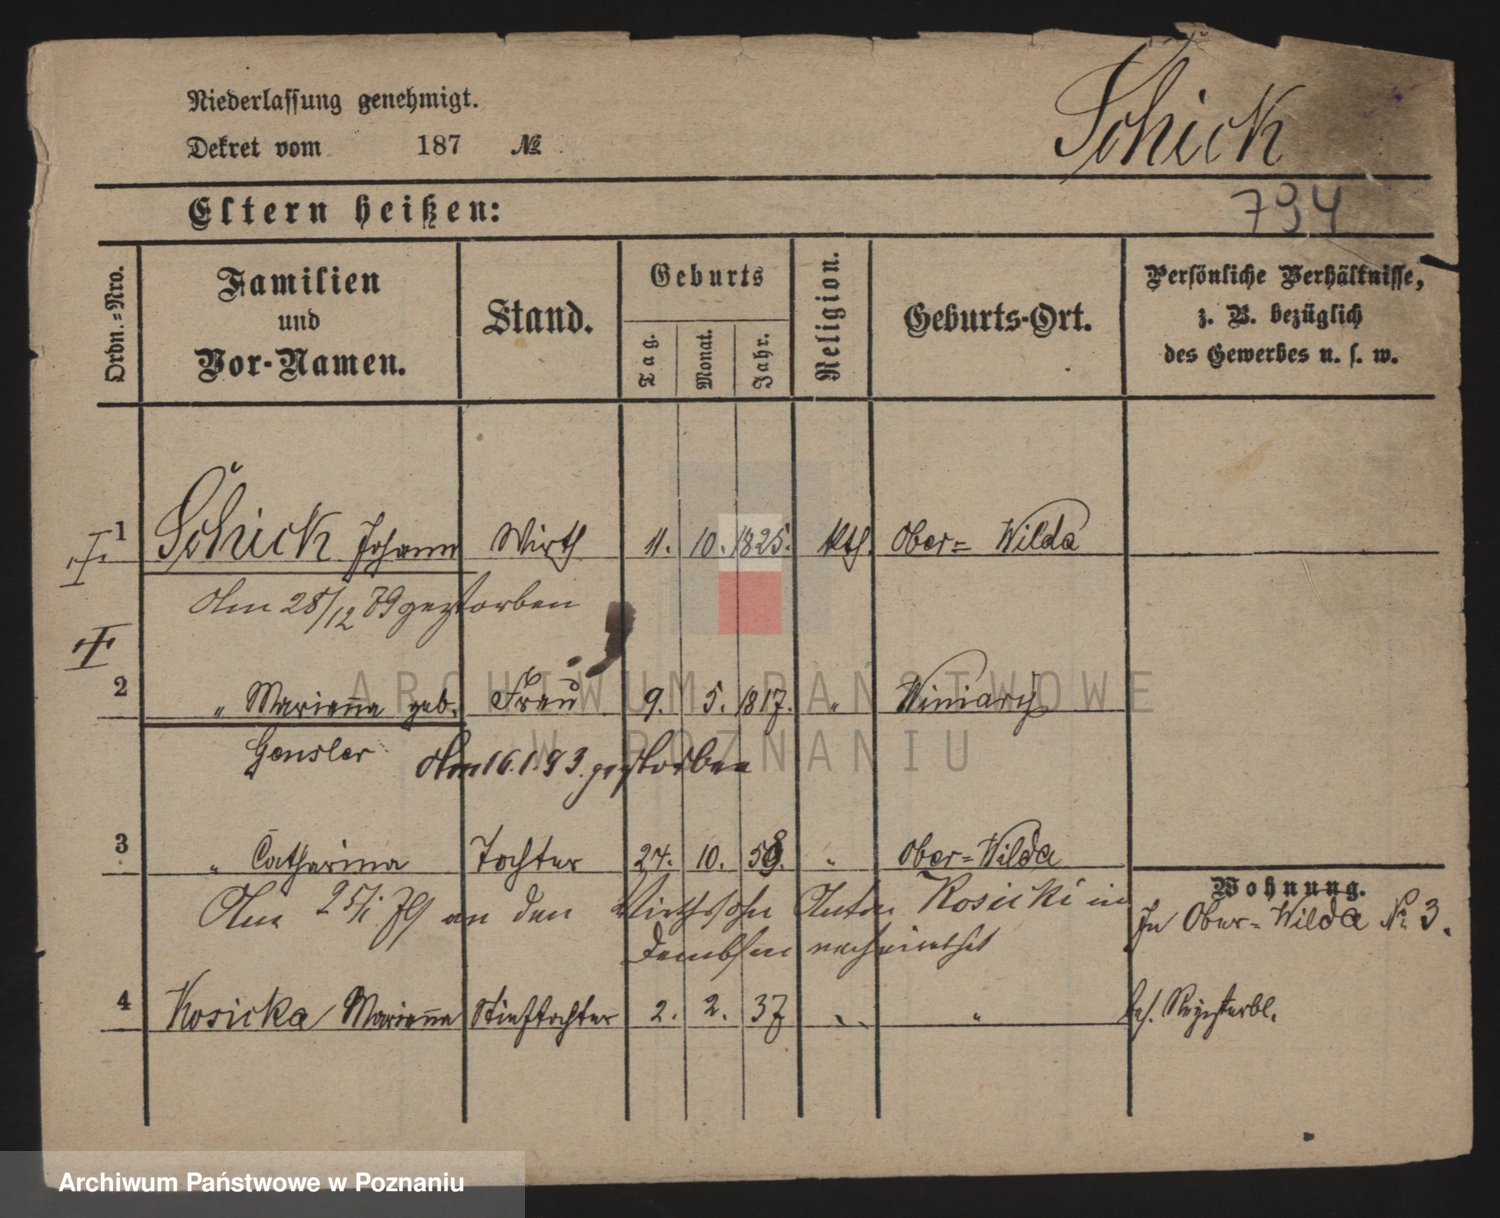 Niederlassung genehmigt.
Dekret vom 187 №
Schick
794
Eltern heißen:
Ordn.=Nro.
Familien
und
Vor-Namen.
Stand.
Geburts
Tag.
Monat.
Jahr.
Religion.
Geburts-Ort.
Persönliche Verhältnisse,
z. B. bezüglich
des Gewerbes u. s. w.
1 Schick Johann Wirth 11. 10. 1825. kth. Ober= Wilda
Am 28/12 89 gestorben
2 " Marianna geb. Frau 9. 5. 1817. " Winiary
Gensler Am 16.1.93. gestorben
3 " Catharina Tochter 27. 10. 58. " Ober=Wilda
Wohnung.
Am 25/1 79 an den Wirthssohn Anton Kosicki in
In Ober=Wilda № 3.
Dembsen verheirathet
4 Kosicka Marianna Stieftochter 2. 2. 37 " "
bes. Registerbl.
ARCHIWUM PAŃSTWOWE
W POZNANIU
Archiwum Państwowe w Poznaniu